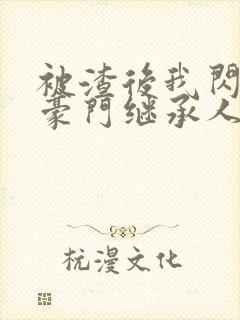 被渣後我閃
豪門继承人
杭漫文化